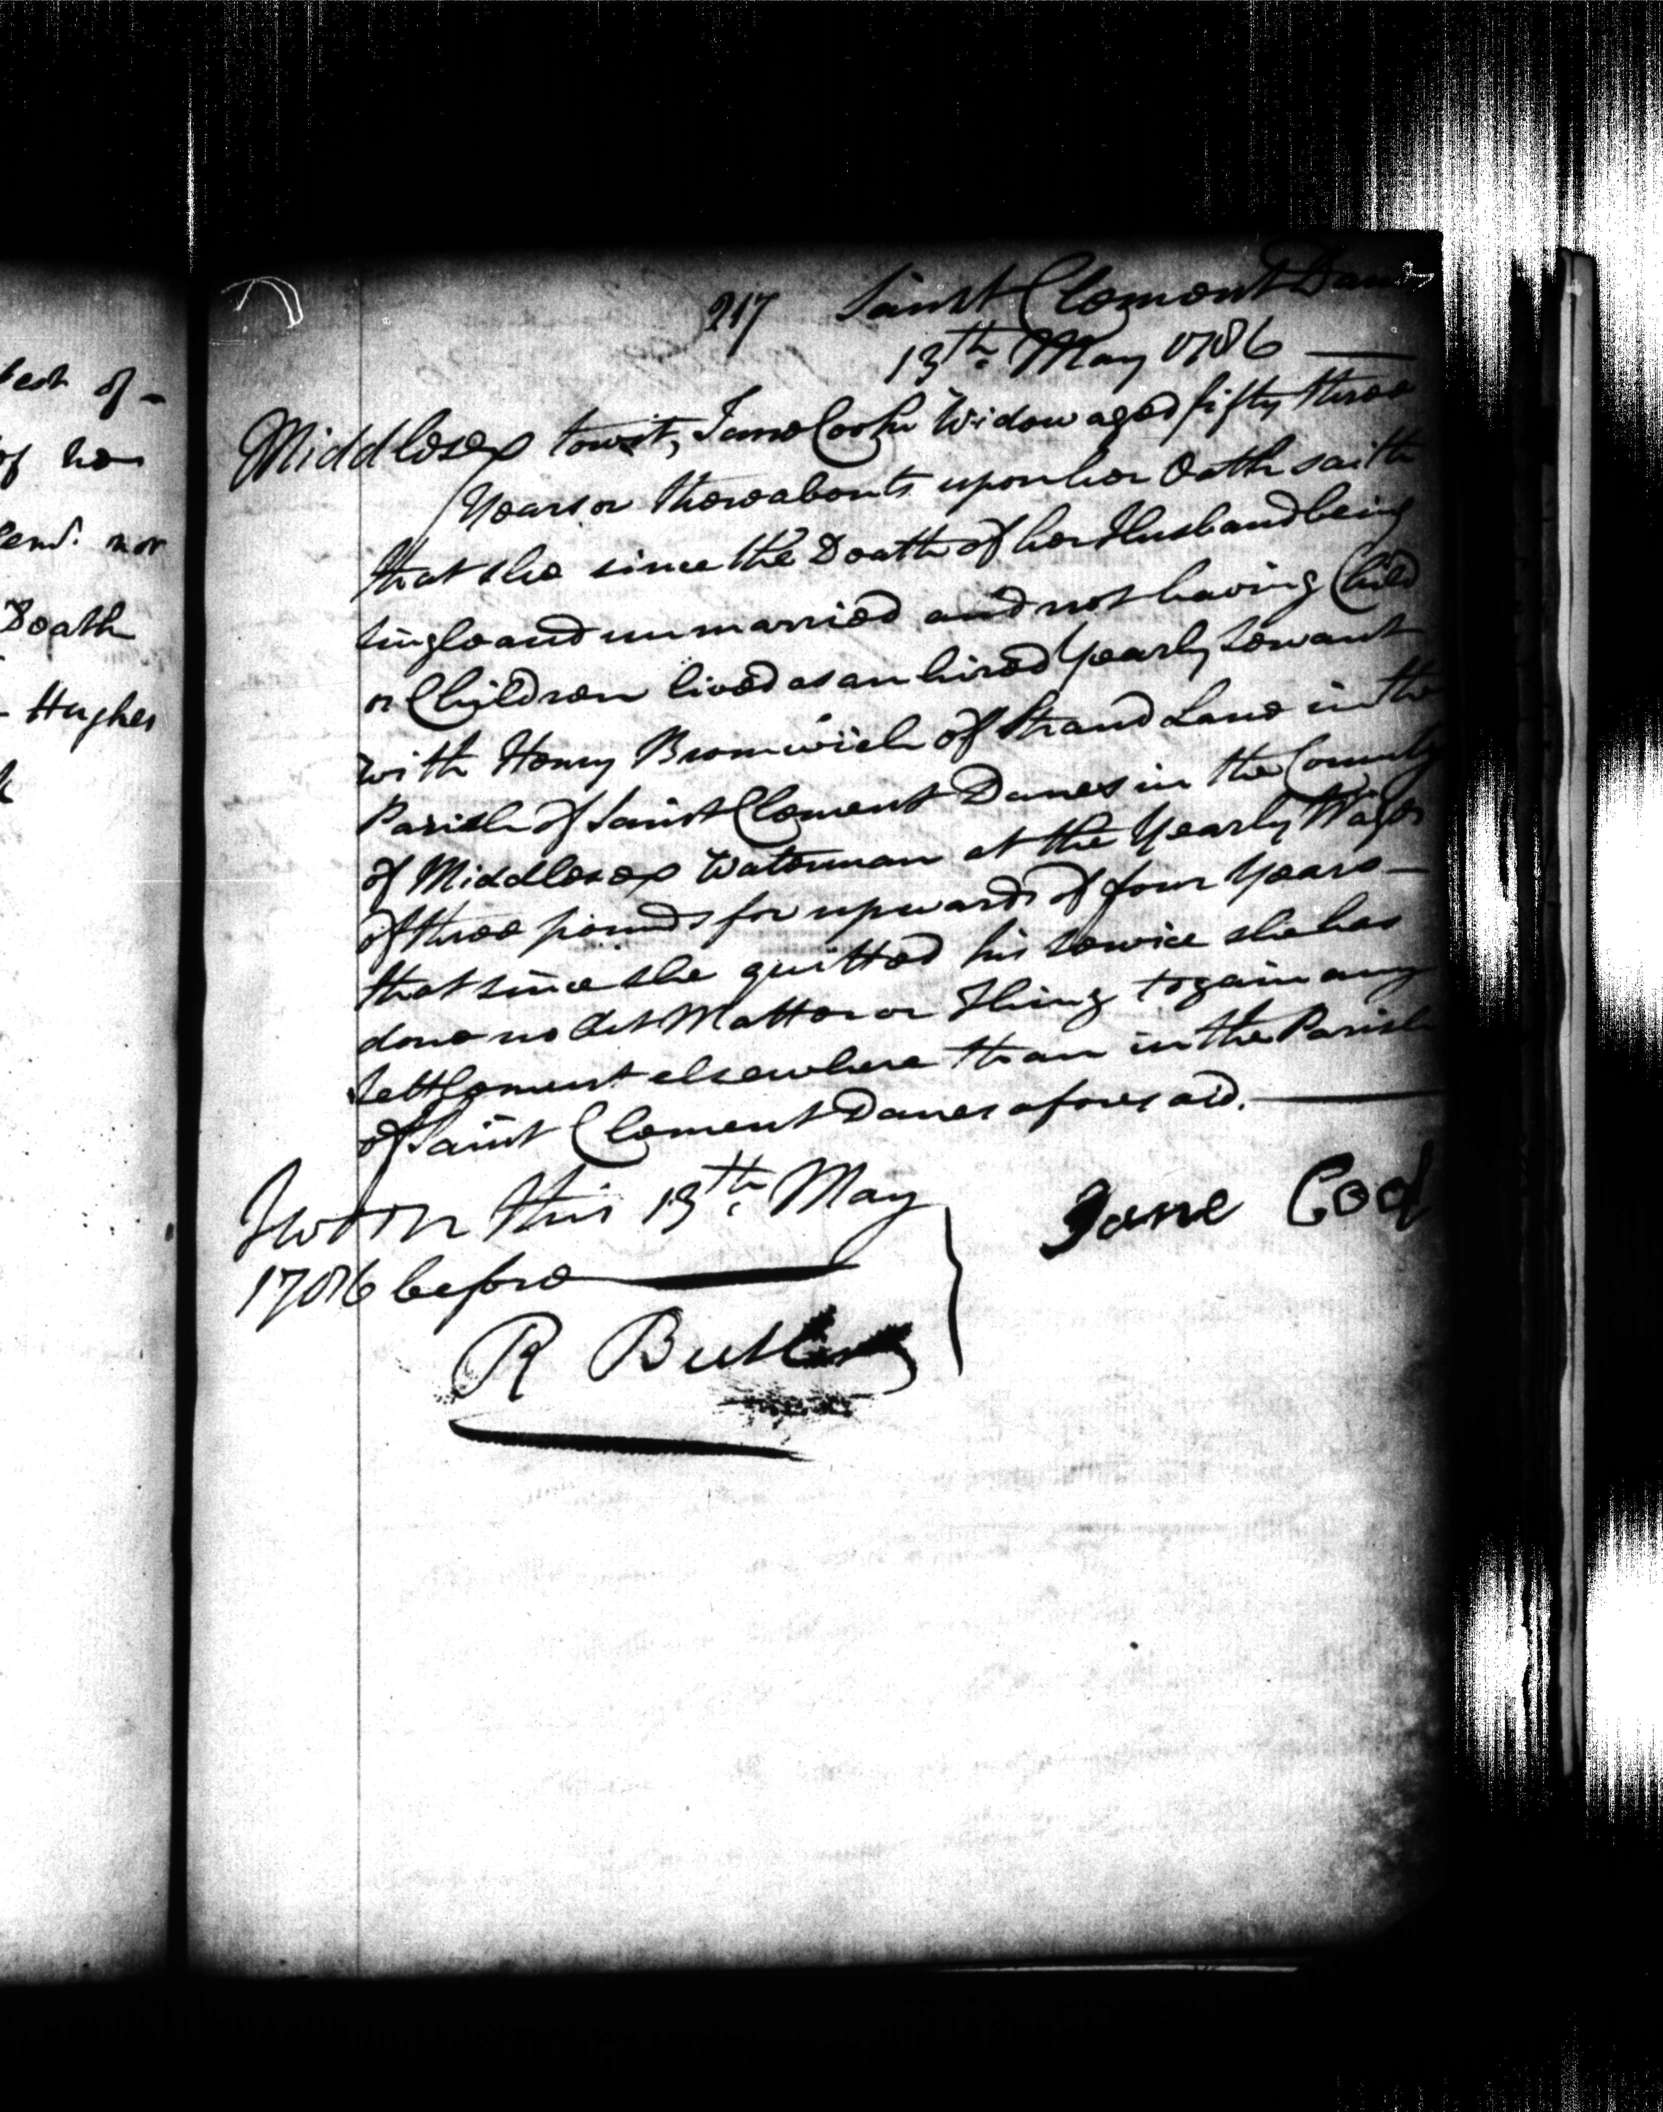 lect of -
of he
Send. nor
Death
- Hughes
217 Saint Clement Danes
13th. May 1786
Middlesex towit, Jane Cooke Widow aged fifty three
Years or thereabouts upon her Oath saith
that she since the Death of her Husband being
single and unmarried and not having Child
or Children lived as an hired Yearly Servant
with Henry Bromwich of Strand Lane in the
Parish of Saint Clement Danes in the County
of Middlesex Waterman at the Yearly Wages
of three pounds for upwards of four Years -
that since she quitted his Service she has
done no Act Matter or Thing to gain any
Settlement elsewhere than in the Parish
of Saint Clement Danes aforesaid.
Sworn this 13th. May
1786 before
Jane Coo
R Butler